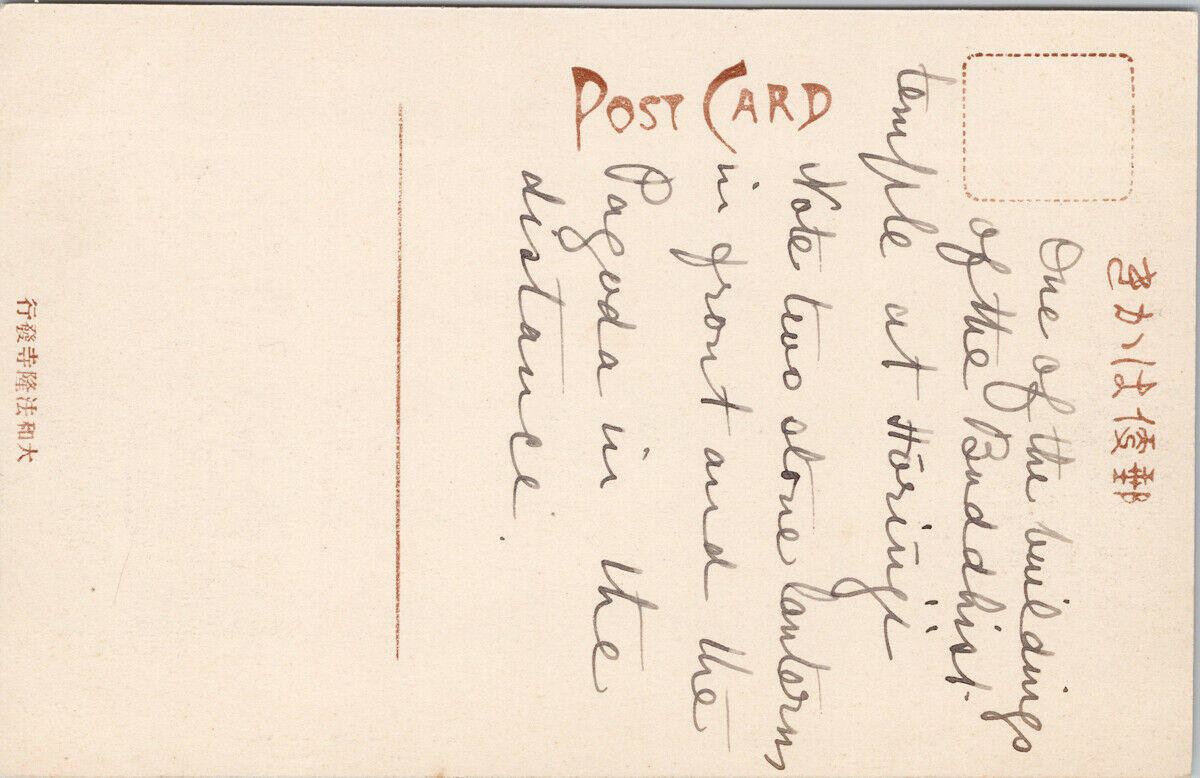 郵便はかき
POST CARD
One of the buildings
of the Buddhist
temple at Hōriūji
Note two stone lanterns
in front and the
Pagoda in the
distance.
大和法隆寺發行